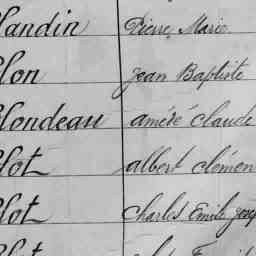 landin Pierre Marie
lon Jean Baptiste
londeau améré Claude
lot albert clémen
lot Charles Emile Josep
lot